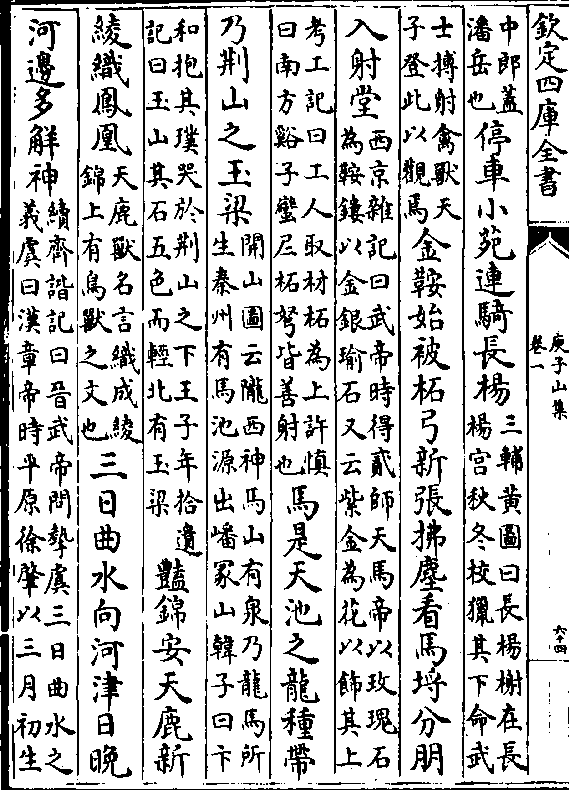 欽定四庫全書
庾子山集
卷一
六十四
中郎蓋
潘岳也
停車小苑連騎長楊
三輔黃圖曰長楊榭在長
楊宮秋冬校獵其下命武
士搏射禽獸天
子登此以觀焉
金鞍始被柘弓新張拂塵看馬埒分朋
入射堂
西京雜記曰武帝時得貳師天馬帝以玫瑰石
為鞍鏤以金銀瑜石又云紫金為花以飾其上
考工記曰工人取材柘為上許慎
曰南方谿子蠻𡰥柘弩皆善射也
馬是天池之龍種帶
乃荆山之玉梁
開山圖云隴西神馬山有泉乃龍馬所
生秦州有馬池源出嶓冢山韓子曰卞
和抱其璞哭於荆山之下王子年拾遺
記曰玉山其石五色而輕北有玉梁
豔錦安天鹿新
綾織鳳凰
天鹿獸名言織成綾
錦上有鳥獸之文也
三日曲水向河津日晚
河邊多解神
續齊諧記曰晉武帝問摯虞三日曲水之
義虞曰漢章帝時平原徐肇以三月初生